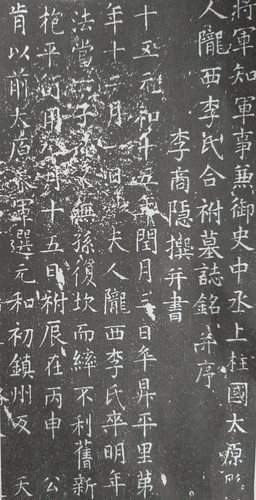 將軍知軍事兼御史中丞上柱國太原
人隴西李氏合祔墓誌銘并序
李商隱撰并書
十五元和十五年閏月三日卒昇平里第
年十二月一日夫人隴西李氏卒明年
法當一子無孫復坎而繂不利舊新
袍平衡用八月十五日祔辰在丙申 公
肯以前太原參軍選元和初鎮州反 天